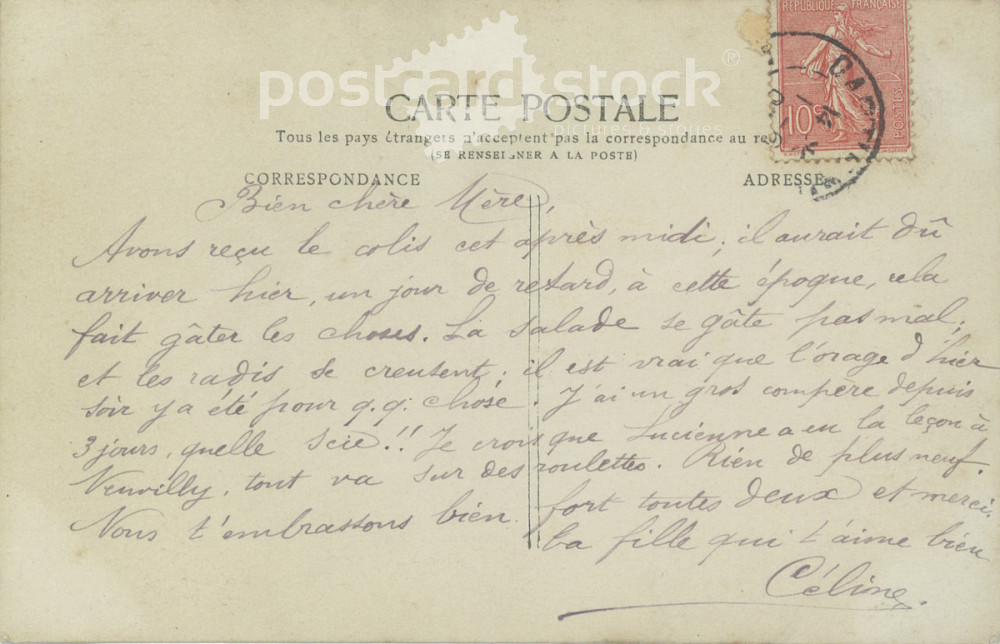 RÉPUBLIQUE FRANÇAISE
10c
POSTES
postcard stock®
pictures & stories
CARTE POSTALE
Tous les pays étrangers n'acceptent pas la correspondance au re
(SE RENSEIGNER A LA POSTE)
CORRESPONDANCE ADRESSE
Bien chère Mère,
Avons reçu le colis cet après midi, il aurait dû
arriver hier, un jour de retard, à cette époque, cela
fait gâter les choses. La salade se gâte pas mal,
et les radis se creusent, il est vrai que l'orage d'hier
soir y a été pour q.q. chose. J'ai un gros compère depuis
3 jours, quelle scie!! Je crois que Lucienne a eu la leçon à
Neuvilly, tout va sur des roulettes. Rien de plus neuf.
Nous t'embrassons bien fort toutes deux et merci.
ta fille qui t'aime bien
Céline.